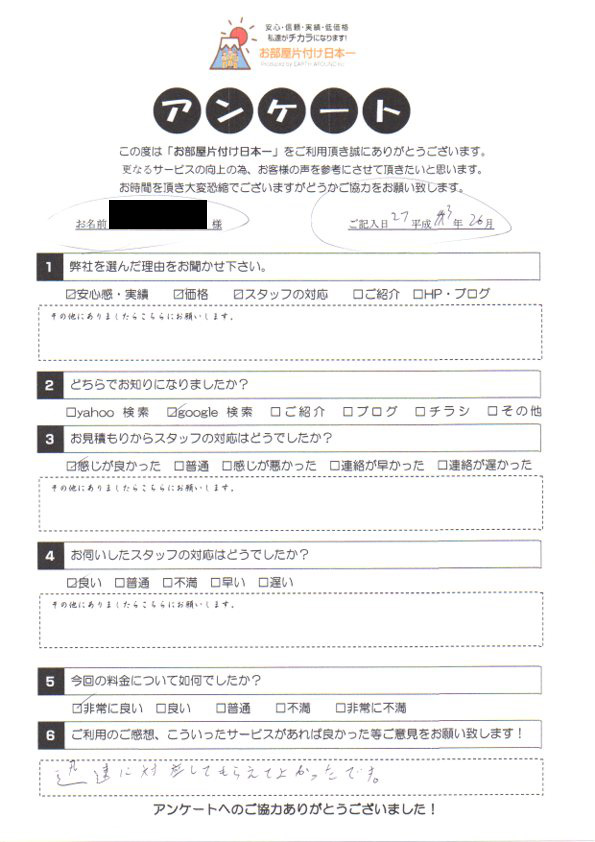 安心・信頼・実績・低価格
私達がチカラになります!
お部屋片付け日本一
Produced by EARTH AROUND inc
アンケート
この度は「お部屋片付け日本一」をご利用頂き誠にありがとうございます。
更なるサービスの向上の為、お客様の声を参考にさせて頂きたいと思います。
お時間を頂き大変恐縮でございますがどうかご協力をお願い致します。
お名前 様 ご記入日 27 平成 年 26 月
1 弊社を選んだ理由をお聞かせ下さい。
☑安心感・実績 ☑価格 ☑スタッフの対応 □ご紹介 □HP・ブログ
その他にありましたらこちらにお願いします。
2 どちらでお知りになりましたか?
□yahoo 検索 ☑google 検索 □ご紹介 □ブログ □チラシ □その他
3 お見積もりからスタッフの対応はどうでしたか?
☑感じが良かった □普通 □感じが悪かった □連絡が早かった □連絡が遅かった
その他にありましたらこちらにお願いします。
4 お伺いしたスタッフの対応はどうでしたか?
☑良い □普通 □不満 □早い □遅い
その他にありましたらこちらにお願いします。
5 今回の料金について如何でしたか?
☑非常に良い □良い □普通 □不満 □非常に不満
6 ご利用のご感想、こういったサービスがあれば良かった等ご意見をお願い致します!
迅速に対応してもらえてよかったです。
アンケートへのご協力ありがとうございました!